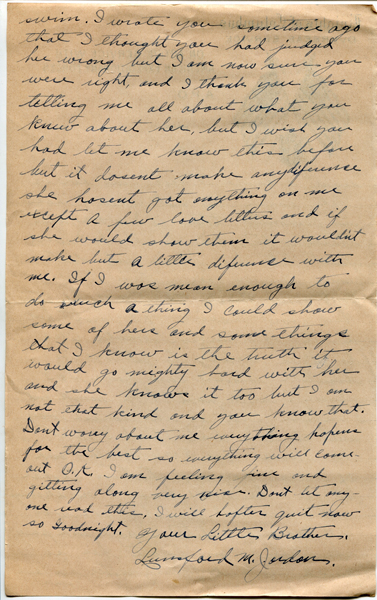 swim. I wrote you sometime ago
that I thought you had judged
her wrong but I am now sure you
were right, and I thank you for
telling me all about what you
knew about her, but I wish you
had let me know this before
but it dosent make any diference
she hasent got anything on me
except a few love letters and if
she would show them it wouldn't
make but a little diference with
me. If I was mean enough to
do such a thing I could show
some of hers and some things
that I know is the truth it
would go mighty hard with her
and she knows it too but I am
not that kind and you know that.
Dont worry about me everything hapens
for the best so everything will come
out O.K. I am feeling fine and
getting along very nice. Dont let any-
one read this, I will hafter quit now
so Goodnight. Your Little Brother.
Lunsford M. Jordon.